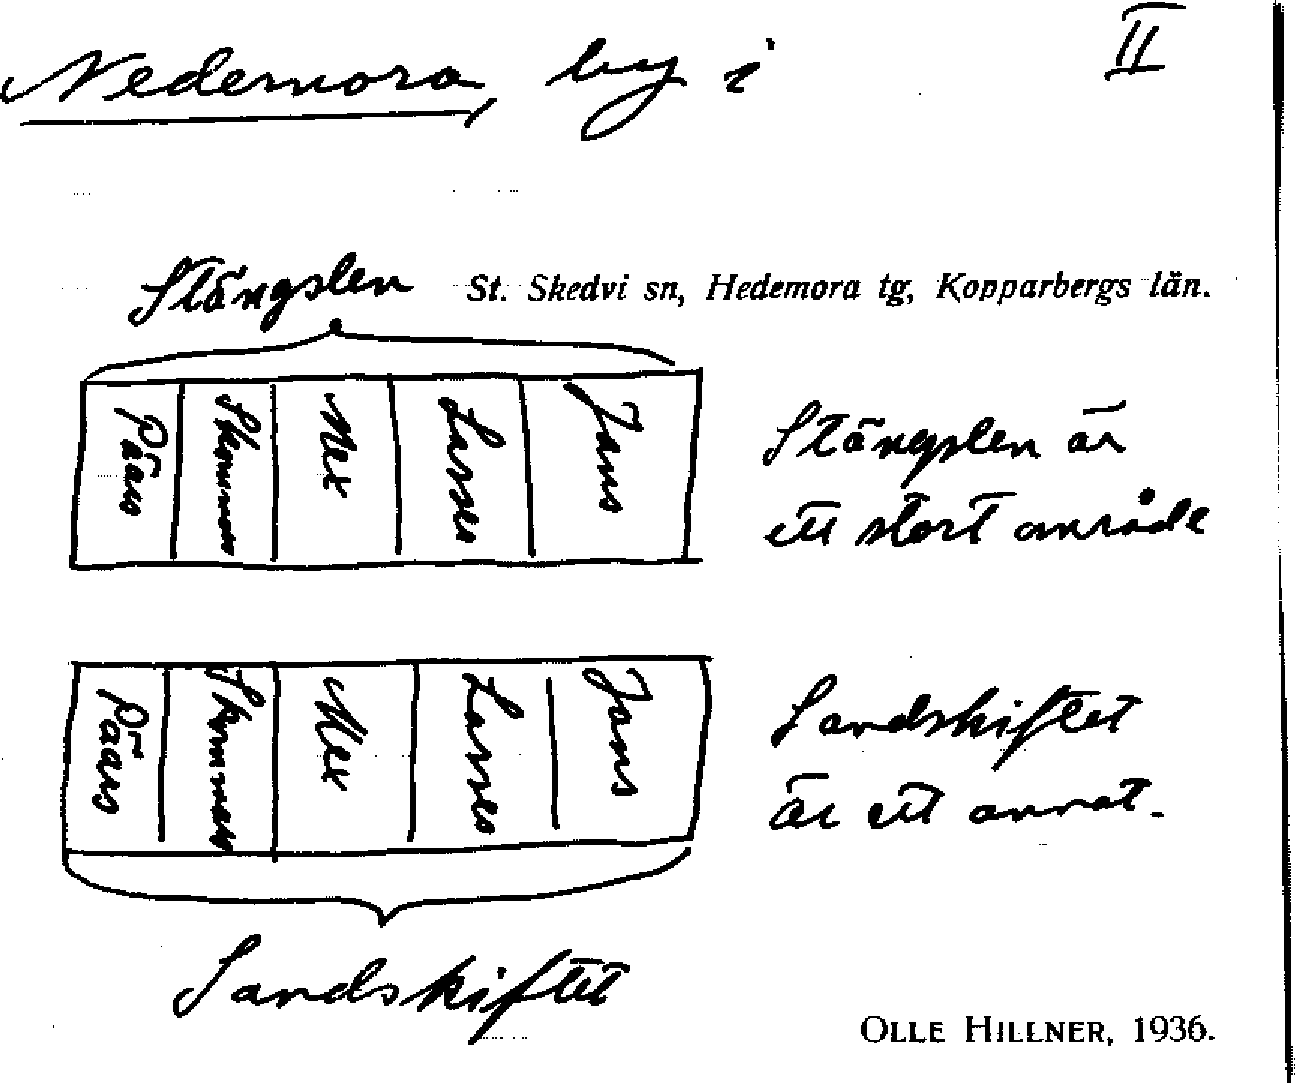 Nedernora, by i
II
Stängslen
St. Skedvi sn, Hedemora tg, Kopparbergs län.
Pääs
Mex
Lasses
Jans
Stängslen är
ett stort område
Pääs
Mex
Lasses
Jans
Sandskiftet
är ett annat.
Sandskiftet
OLLE HILLNER, 1936.